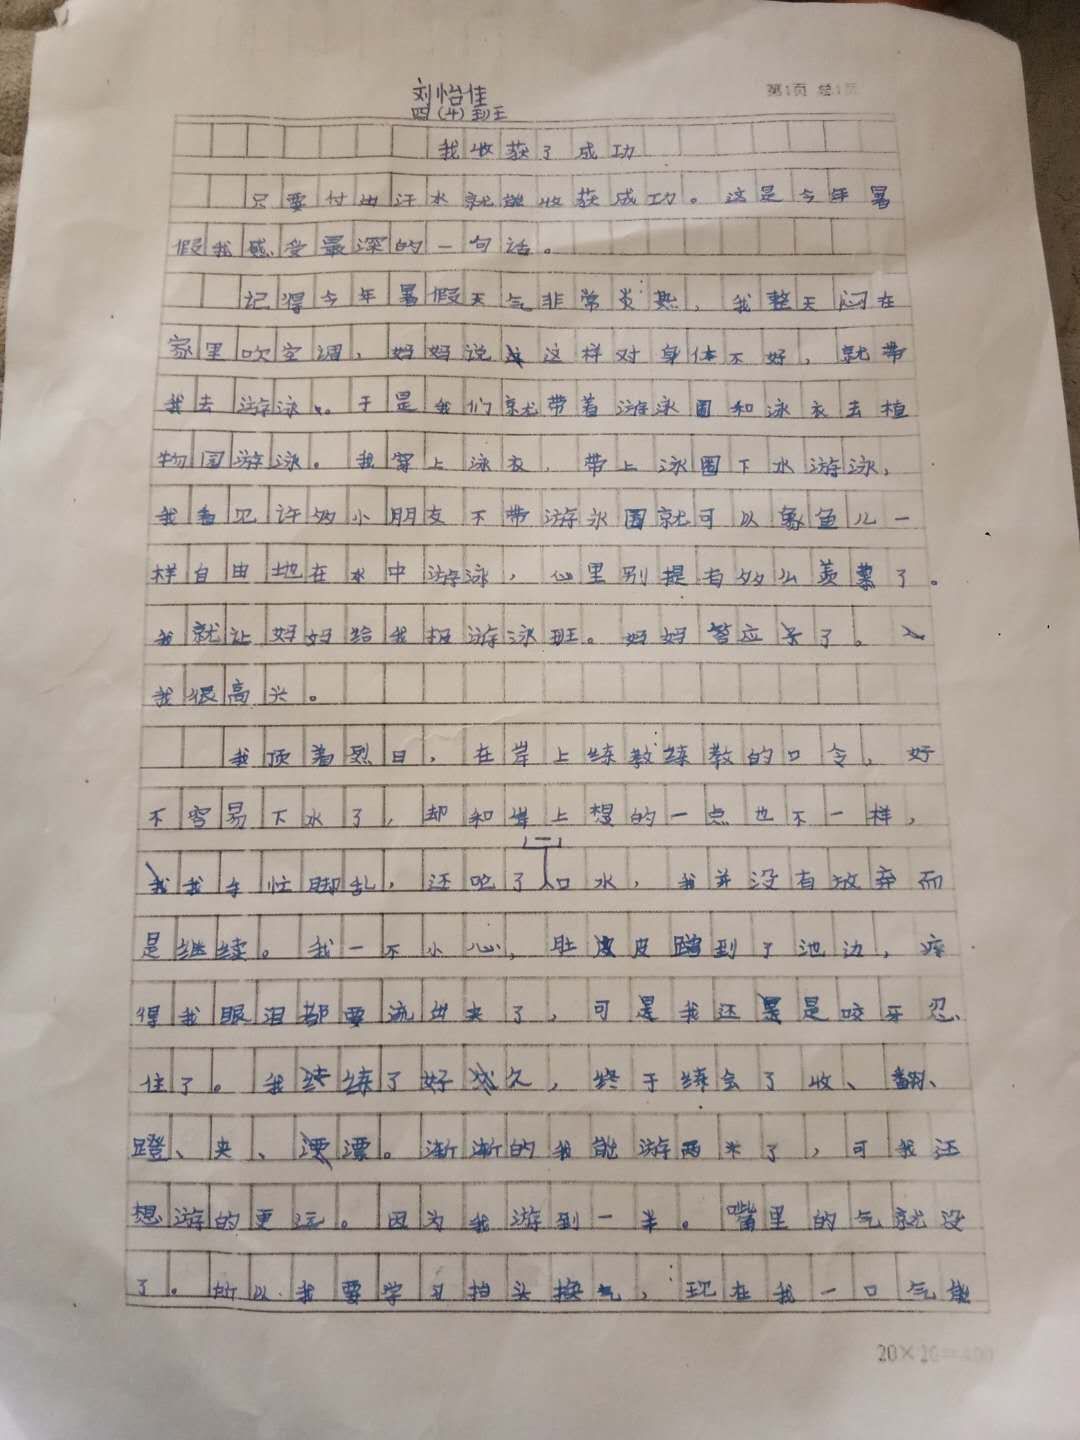 刘怡佳
第1页 总1页
四(4)班
我收获了成功
只要付出汗水就能收获成功。这是今年暑
假我感受最深的一句话。
记得今年暑假天气非常炎热,我整天闷在
家里吹空调,妈妈说这样对身体不好,就带
我去游泳。于是我们就带着游泳圈和泳衣去植
物园游泳。我穿上泳衣,带上泳圈下水游泳,
我看见许多小朋友不带游泳圈就可以象鱼儿一
样自由地在水中游泳,心里别提有多么羡慕了。
我就让妈妈给我报游泳班。妈妈答应了。
我很高兴。
我顶着烈日,在岸上练教练教的口令,好
不容易下水了,却和岸上想的一点也不一样,
我手忙脚乱,还吃了一口水,我并没有放弃而
是继续。我一不小心,肚皮蹭到了池边,疼
得我眼泪都要流出来了,可是我还是咬牙忍
住了。我练了好久,终于练会了收、翻、
蹬、夹、漂。渐渐的我能游两米了,可我还
想游的更远。因为我游到一半。嘴里的气就没
了。所以我要学习抬头换气,现在我一口气能
20×20=400